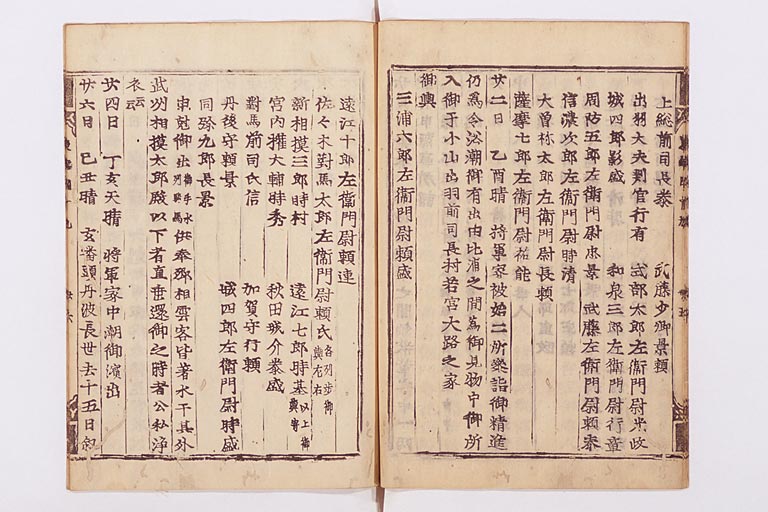 上総前司長泰　　武藤少卿景頼
出羽大夫判官行有　式部太郎左衛門尉光政
城四郎影盛　　和泉三郎左衛門尉行章
周防五郎左衛門尉忠景　武藤左衛門尉頼泰
信濃次郎左衛門尉時清
大曽祢太郎左衛門尉長頼
薩摩七郎左衛門尉祐能
廿二日　乙酉晴　将軍家被始二所樂詣御精進
仍為令浴潮御有出由比浦之間為御見物中御所
入御于小山出羽前司長村若宮大路之家
御輿
三浦六郎左衛門尉頼盛
遠江十郎左衛門尉頼連
佐々木對馬太郎左衛門尉頼氏各列歩御輿左右
新相摸三郎時村　　遠江七郎時基以上御輿寄
宮内権大輔時秀　　秋田城介泰盛
對馬前司氏信　　加賀守行頼
丹後守頼景　　城四郎左衛門尉時盛
同弥九郎長景
申尅御出供奉卿相雲客皆著水干其外
武州相摸太郎殿以下者直垂還御之時者公私浄
衣云云
廿四日　丁亥天晴　将軍家中潮御濱出
廿六日　己丑晴　玄蕃頭丹波長世去十五日叙